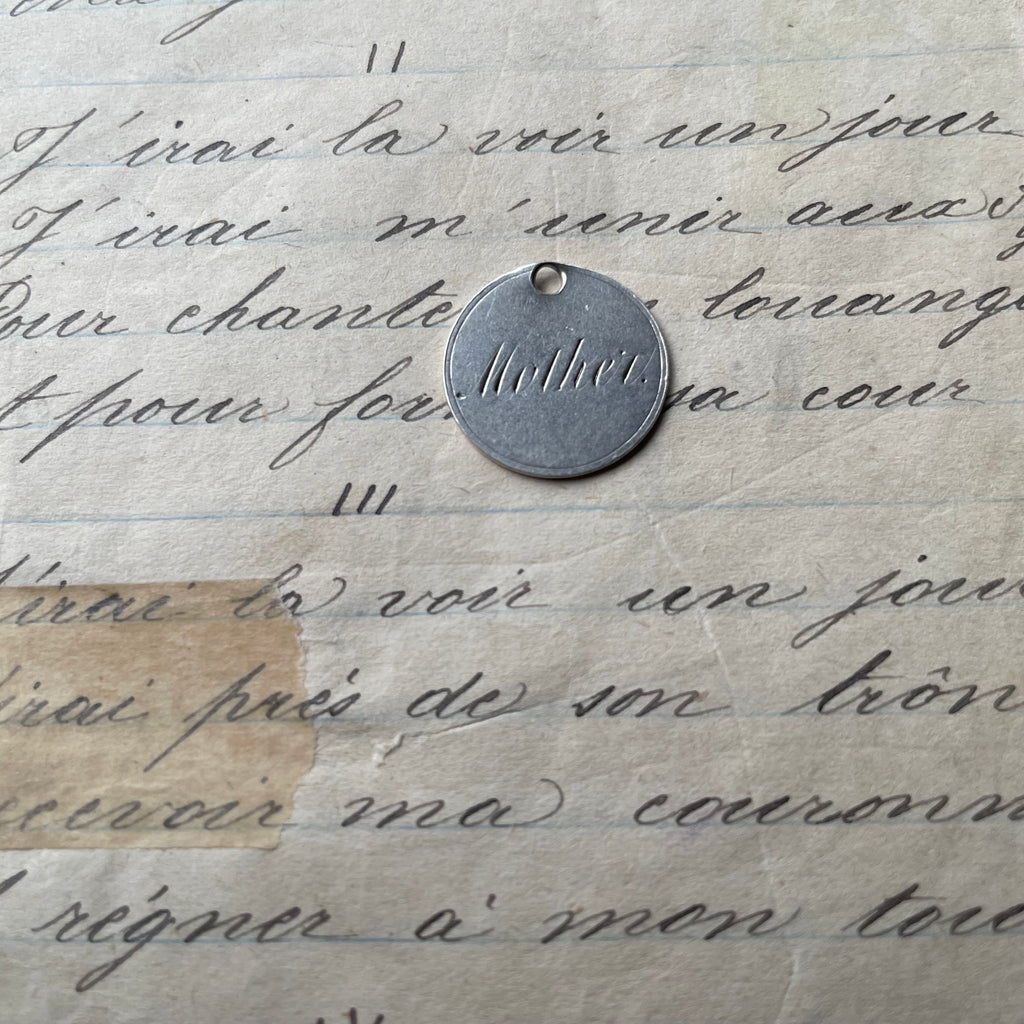 II
J'irai la voir un jour
J'irai m'unir aux
Pour chante louang
t pour for sa cour
Mother.
III
J'irai la voir un jou
irai près de son trôn
ecevoir ma couronn
régner à mon tou
IV